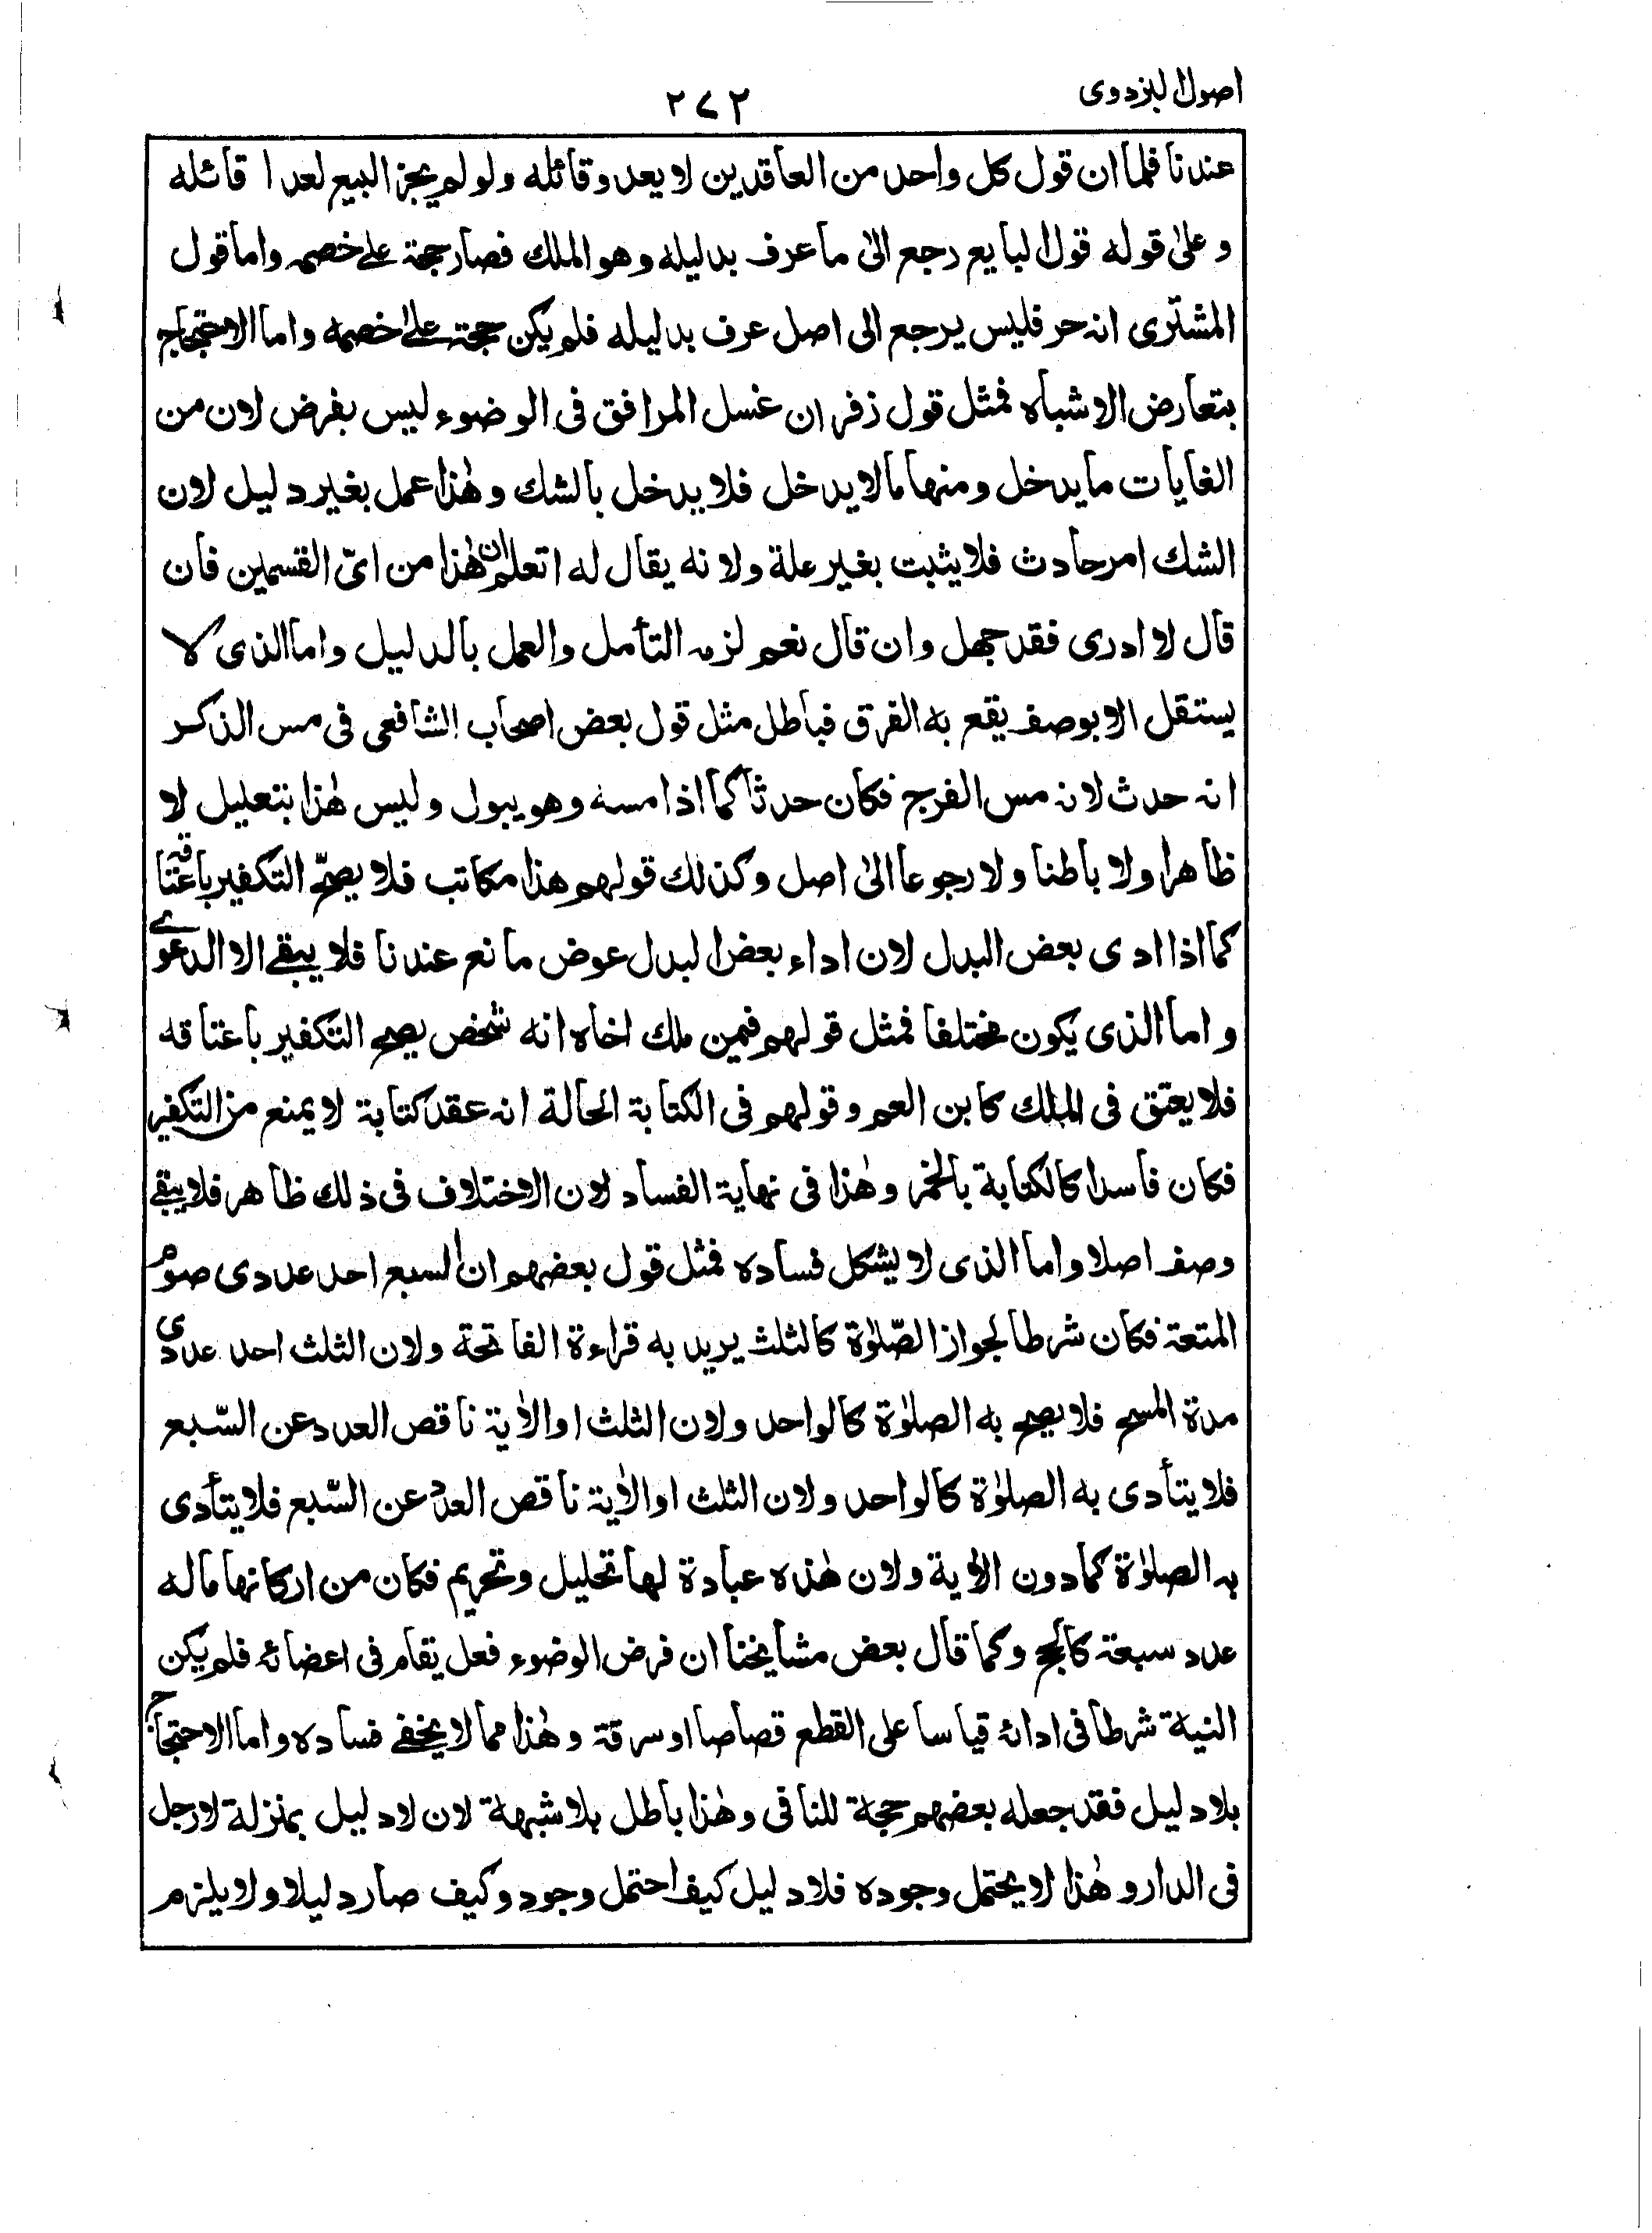 اصول البزدوى
۲۷۲
عندنا فلما ان قول كل واحد من العاقدين لا يعدو قائله ولو لم يجز البيع لعدا قائله
وعلى قوله قول البايع رجع الى ما عرف بدليله وهو الملك فصار حجة على خصمه واما قول
المشترى انه حر فليس يرجع الى اصل عرف بدليله فلم يكن حجة على خصمه واما الاحتجاج
بتعارض الاشباه فمثل قول زفر ان غسل المرافق فى الوضوء ليس بفرض لان من
الغايات ما يدخل ومنها مالا يدخل فلا يدخل بالشك وهٰذا عمل بغير دليل لان
الشك امر حادث فلا يثبت بغير علة ولانه يقال له اتعلم ان هٰذا من اىّ القسمين فان
قال لا ادرى فقد جهل وان قال نعم لزمه التأمل والعمل بالدليل واما الذى لا
يستقل الا بوصف يقع به الفرق فباطل مثل قول بعض اصحاب الشافعى فى مس الذكر
انه حدث لانه مس الفرج فكان حدثا كما اذا مسه وهو يبول وليس هٰذا بتعليل لا
ظاهرا ولا باطنا ولا رجوعا الىٰ اصل وكذلك قولهم هذا مكاتب فلا يصحّ التكفير باعتاقه
كما اذا ادى بعض البدل لان اداء بعض البدل عوض مانع عندنا فلا يبقے الا الدعوے
واما الذى يكون مختلفا فمثل قولهم فيمن ملك اخاه انه شخص يصح التكفير باعتاقه
فلا يعتق فى الملك كابن العم وقولهم فى الكتابة الحالة انه عقد كتابة لا يمنع من التكفير
فكان فاسدا كالكتابة بالخمر وهٰذا فى نهاية الفساد لان الاختلاف فى ذلك ظاهر فلا يبقے
وصف اصلا واما الذى لا يشكل فساده فمثل قول بعضهم ان السبع احد عددى صوم
المتعة فكان شرطا لجواز الصّلوٰة كالثلث يريد به قراءة الفاتحة ولان الثلث احد عددى
مدة المسح فلا يصح به الصلوٰة كالواحد ولان الثلث او الاٰية ناقص العدد عن السّبع
فلا يتأدى به الصلوٰة كالواحد ولان الثلث او الاٰية ناقص العدد عن السّبع فلا يتأدى
به الصلوٰة كما دون الاٰية ولان هٰذه عبادة لها تحليل وتحريم فكان من اركانها ما له
عدد سبعة كالحج وكما قال بعض مشايخنا ان فرض الوضوء فعل يقام فى اعضائه فلم يكن
النية شرطا فى ادائه قياسا على القطع قصاصا او سرقة وهٰذا مما لا يخفے فساده واما الاحتجاج
بلا دليل فقد جعله بعضهم حجة للنافى وهٰذا باطل بلا شبهة لان لا دليل بمنزلة لا رجل
فى الدار وهٰذا لا يحتمل وجوده فلا دليل كيف احتمل وجود وكيف صار دليلا ولا يلزم